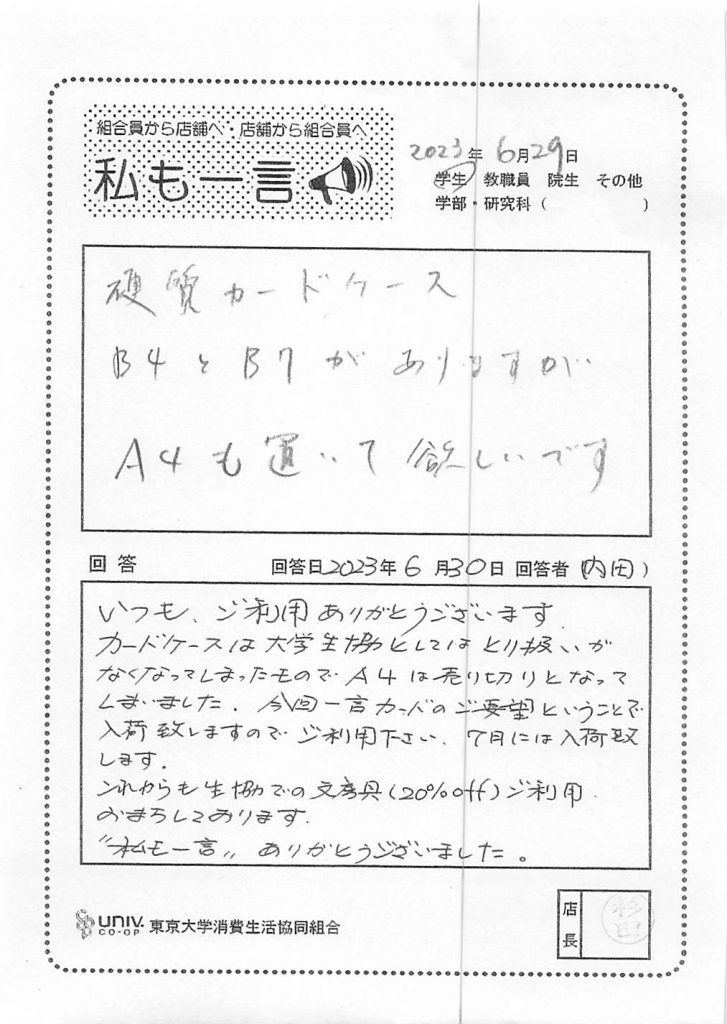 組合員から店舗へ・店舗から組合員へ
私も一言
2023年 6月29日
学生 教職員 院生 その他
学部・研究科 ( )
硬質カードケース
B4とB7がありますが
A4も置いて欲しいです
回答 回答日2023年6月30日 回答者(内田)
いつも、ご利用ありがとうございます.
カードケースは大学生協としてはとり扱いが
なくなってしまったものでA4は売り切りとなって
しまいました. 今回一言カードのご要望ということで
入荷致しますのでご利用下さい. 7月には入荷致
します.
これからも生協での文房具(20%off)ご利用
おまちしております.
"私も一言" ありがとうございました。
UNIV. CO-OP 東京大学消費生活協同組合
店長